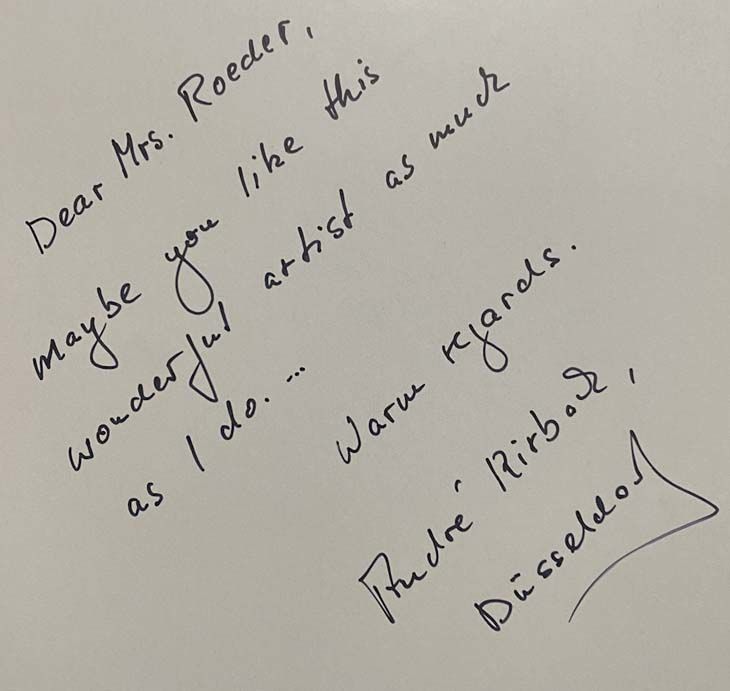 Dear Mrs. Roeder,
maybe you like this
wonderful artist as much
as I do. ...
Warm regards.
André Kirbach,
Düsseldorf